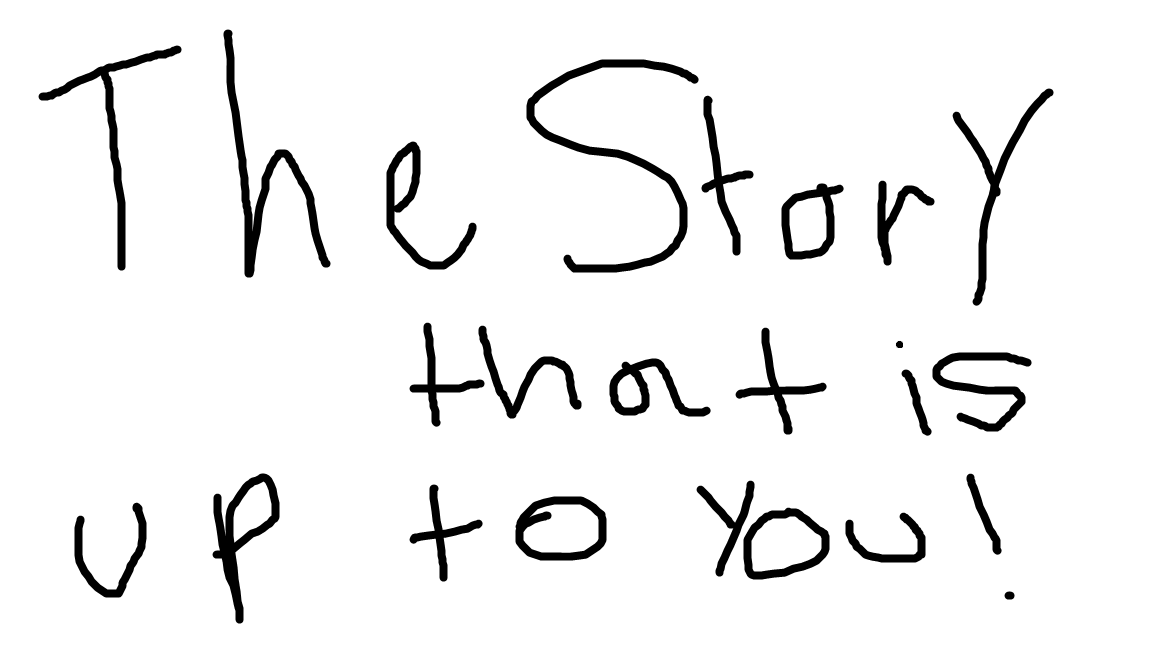 The Story
that is
up to you!